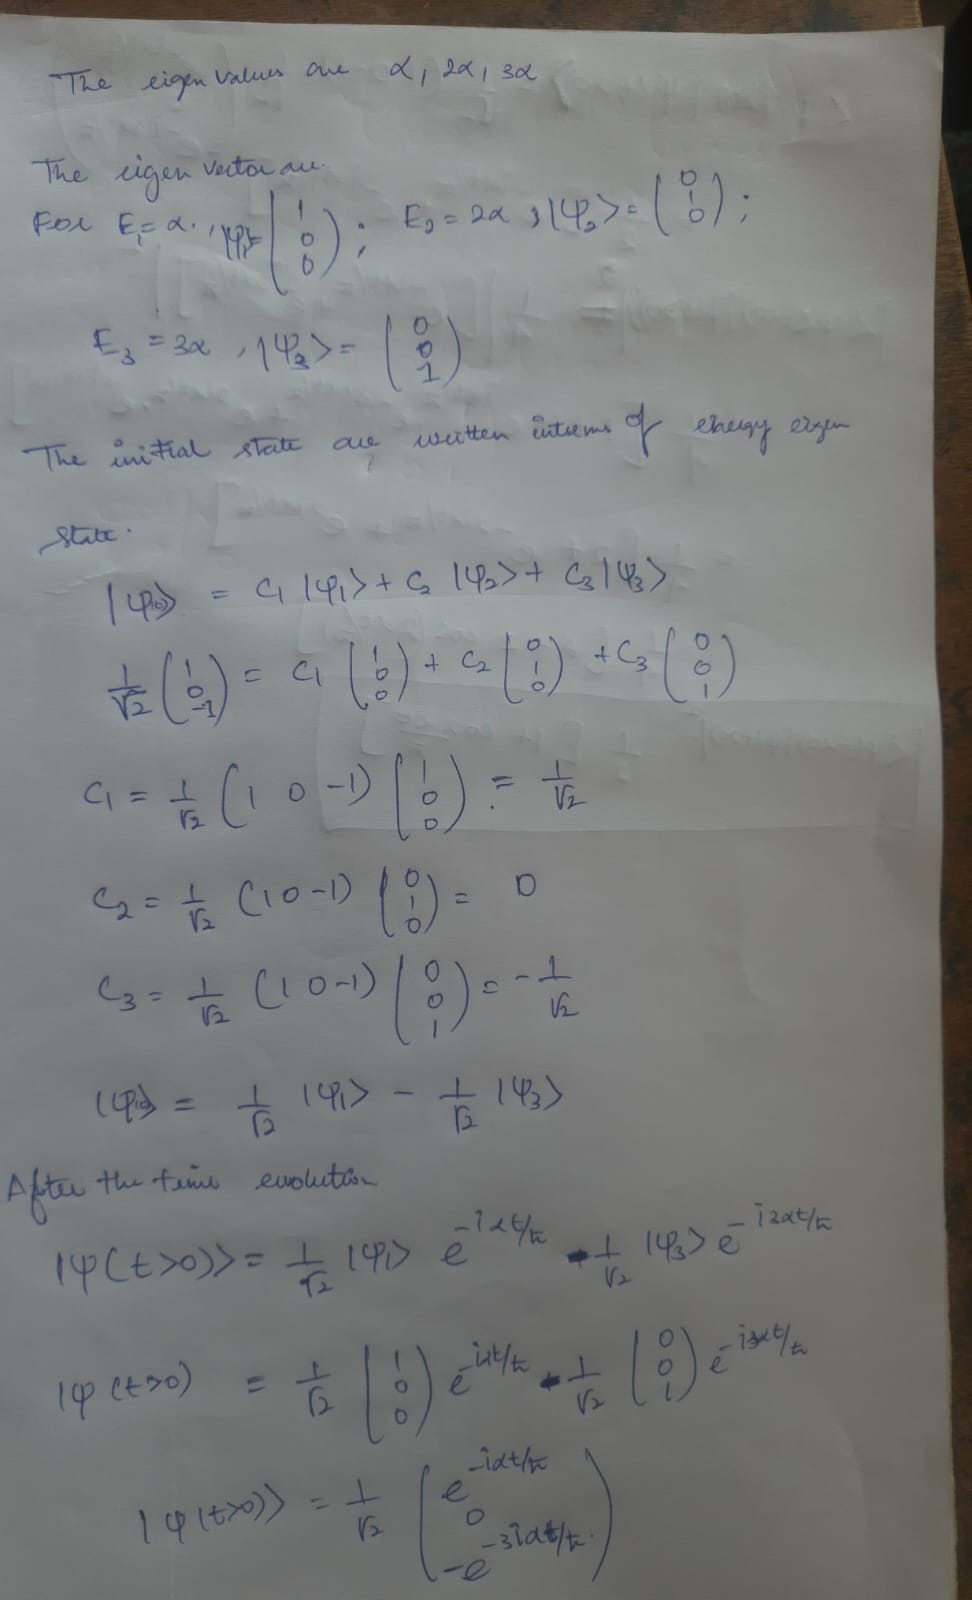 The eigen values are α, 2α, 3α
The eigen vector are.
For E₁=α., |φ₁>= (1 0 0) ; E₂ = 2α ; |φ₂> = (0 1 0) ;
E₃ = 3α , |φ₃> = (0 0 1)
The initial state are written interms of energy eigen
state.
|φ(0)> = C₁ |φ₁> + C₂ |φ₂> + C₃ |φ₃>
1/√2 (1 0 -1) = C₁ (1 0 0) + C₂ (0 1 0) + C₃ (0 0 1)
C₁ = 1/√2 (1 0 -1) (1 0 0) = 1/√2
C₂ = 1/√2 (1 0 -1) (0 1 0) = 0
C₃ = 1/√2 (1 0 -1) (0 0 1) = - 1/√2
|φ(0)> = 1/√2 |φ₁> - 1/√2 |φ₃>
After the time evolution
|φ(t>0)> = 1/√2 |φ₁> e^{-iαt/ħ} - 1/√2 |φ₃> e^{-i3αt/ħ}
|φ(t>0) = 1/√2 (1 0 0) e^{-iαt/ħ} - 1/√2 (0 0 1) e^{-i3αt/ħ}
|φ(t>0)> = 1/√2 (e^{-iαt/ħ} 0 -e^{-3iαt/ħ})